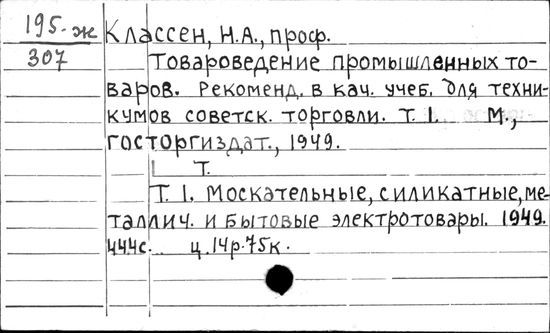 195-ж
307
Классен, Н.А., проф.
Товароведение промышленных то-
варов. Рекоменд. в кач. учеб. для техни-
кумов советск. торговли. Т. I. М.,
Госторгиздат., 1949.
Т.
Т. I. Москательные, силикатные, ме-
таллич. и бытовые электротовары. 1949.
444с. ц. 14р. 75к.